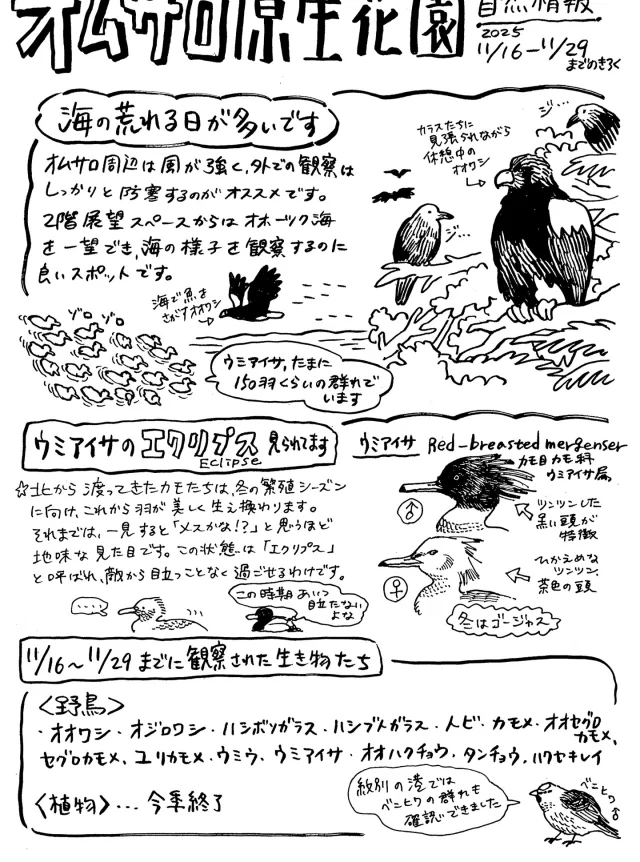 オムサロ原生花園
自然情報
2025
11/16-11/29
までのきろく
海の荒れる日が多いです
オムサロ周辺は風が強く、外での観察は
しっかりと防寒するのがオススメです。
2階展望スペースからはオホーツク海
を一望でき、海の様子を観察するのに
良いスポットです。
カラスたちに
見張られながら
休憩中の
オオワシ
ジ…
ジ…
海で魚を
さがすオオワシ
ゾロゾロ
ウミアイサ、たまに
150羽くらいの群れで
います
ウミアイサのエクリプス見られてます
Eclipse
☆北から渡ってきたカモたちは、冬の繁殖シーズン
に向け、これから羽が美しく生え換わります。
それまでは、一見すると「メスかな!?」と思うほど
地味な見た目です。この状態は「エクリプス」
と呼ばれ、敵から目立つことなく過ごせるわけです。
....
この時期あいつ
目立たない
よな
ウミアイサ Red-breasted merganser
カモ目カモ科
ウミアイサ属
♂
ツンツンした
黒い頭が
特徴
♀
ひかえめな
ツンツン、
茶色の頭
冬はゴージャス
11/16~11/29までに観察された生き物たち
<野鳥>
・オオワシ・オジロワシ・ハシボソガラス・ハシブトガラス・トビ・カモメ・オオセグロ
カモメ、
セグロカモメ、ユリカモメ・ウミウ、ウミアイサ・オオハクチョウ、タンチョウ、ハクセキレイ
<植物>…今季終了
紋別の港では
ベニヒワの群れも
確認できました
ベニヒワ♂